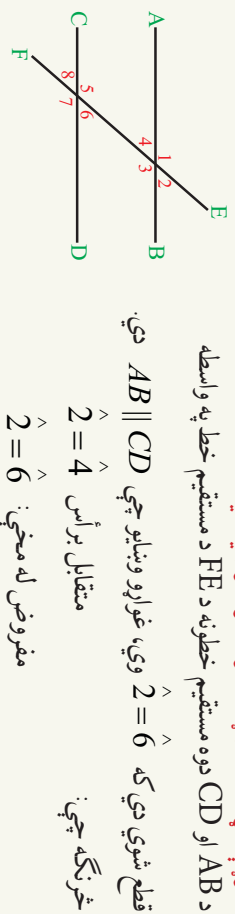 د AB او CD دوه مستقیم خطونه د FE د مستقیم خط په واسطه
قطع شوي دي که 2̂ = 6̂ وي، غواړو وښایو چې AB || CD دي.
څرنګه چې: متقابل برأس 2̂ = 4̂
مفروض له مخې: 2̂ = 6̂
A B
C D
E
F
1 2
4 3
5 6
8 7